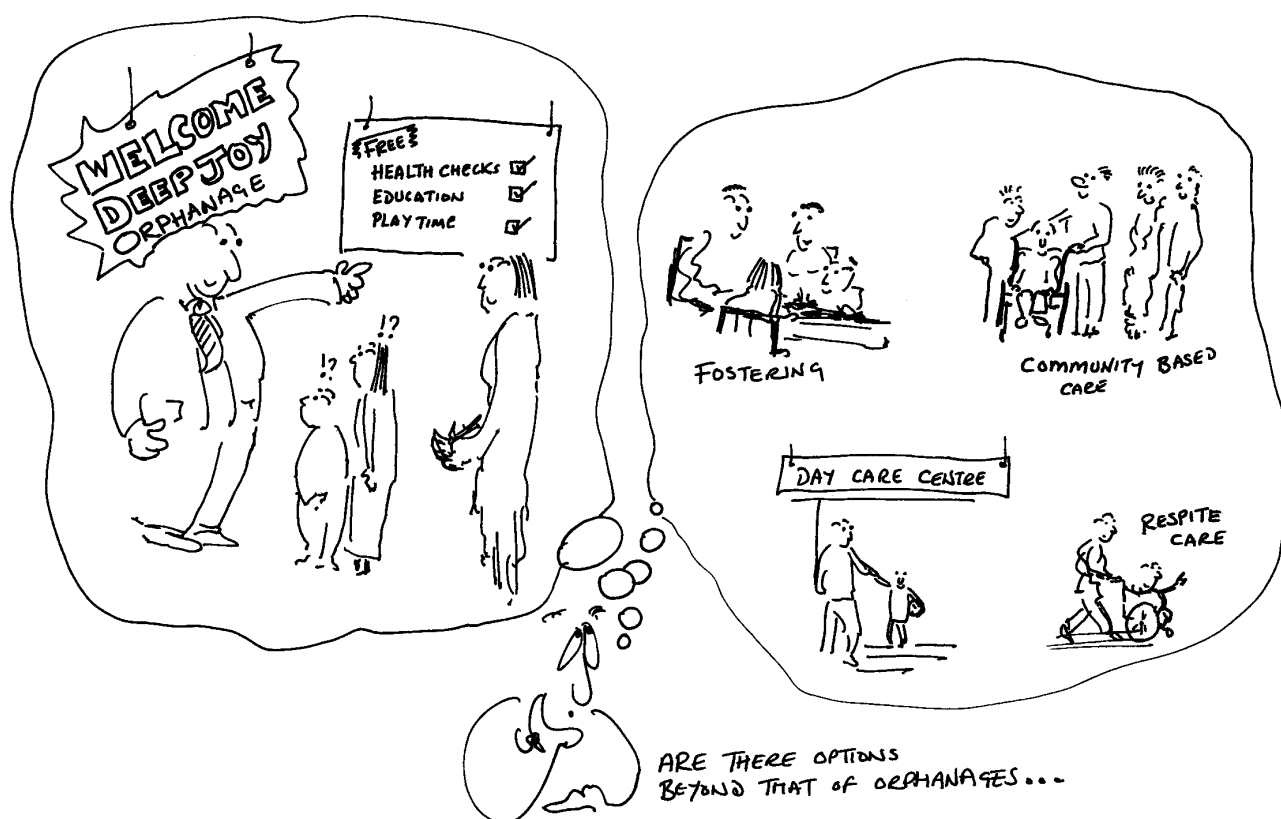 WELCOME
DEEPJOY
ORPHANAGE
FREE
HEALTH CHECKS
EDUCATION
PLAY TIME
!?
!?
FOSTERING
COMMUNITY BASED
CARE
DAY CARE CENTRE
RESPITE
CARE
ARE THERE OPTIONS
BEYOND THAT OF ORPHANAGES...